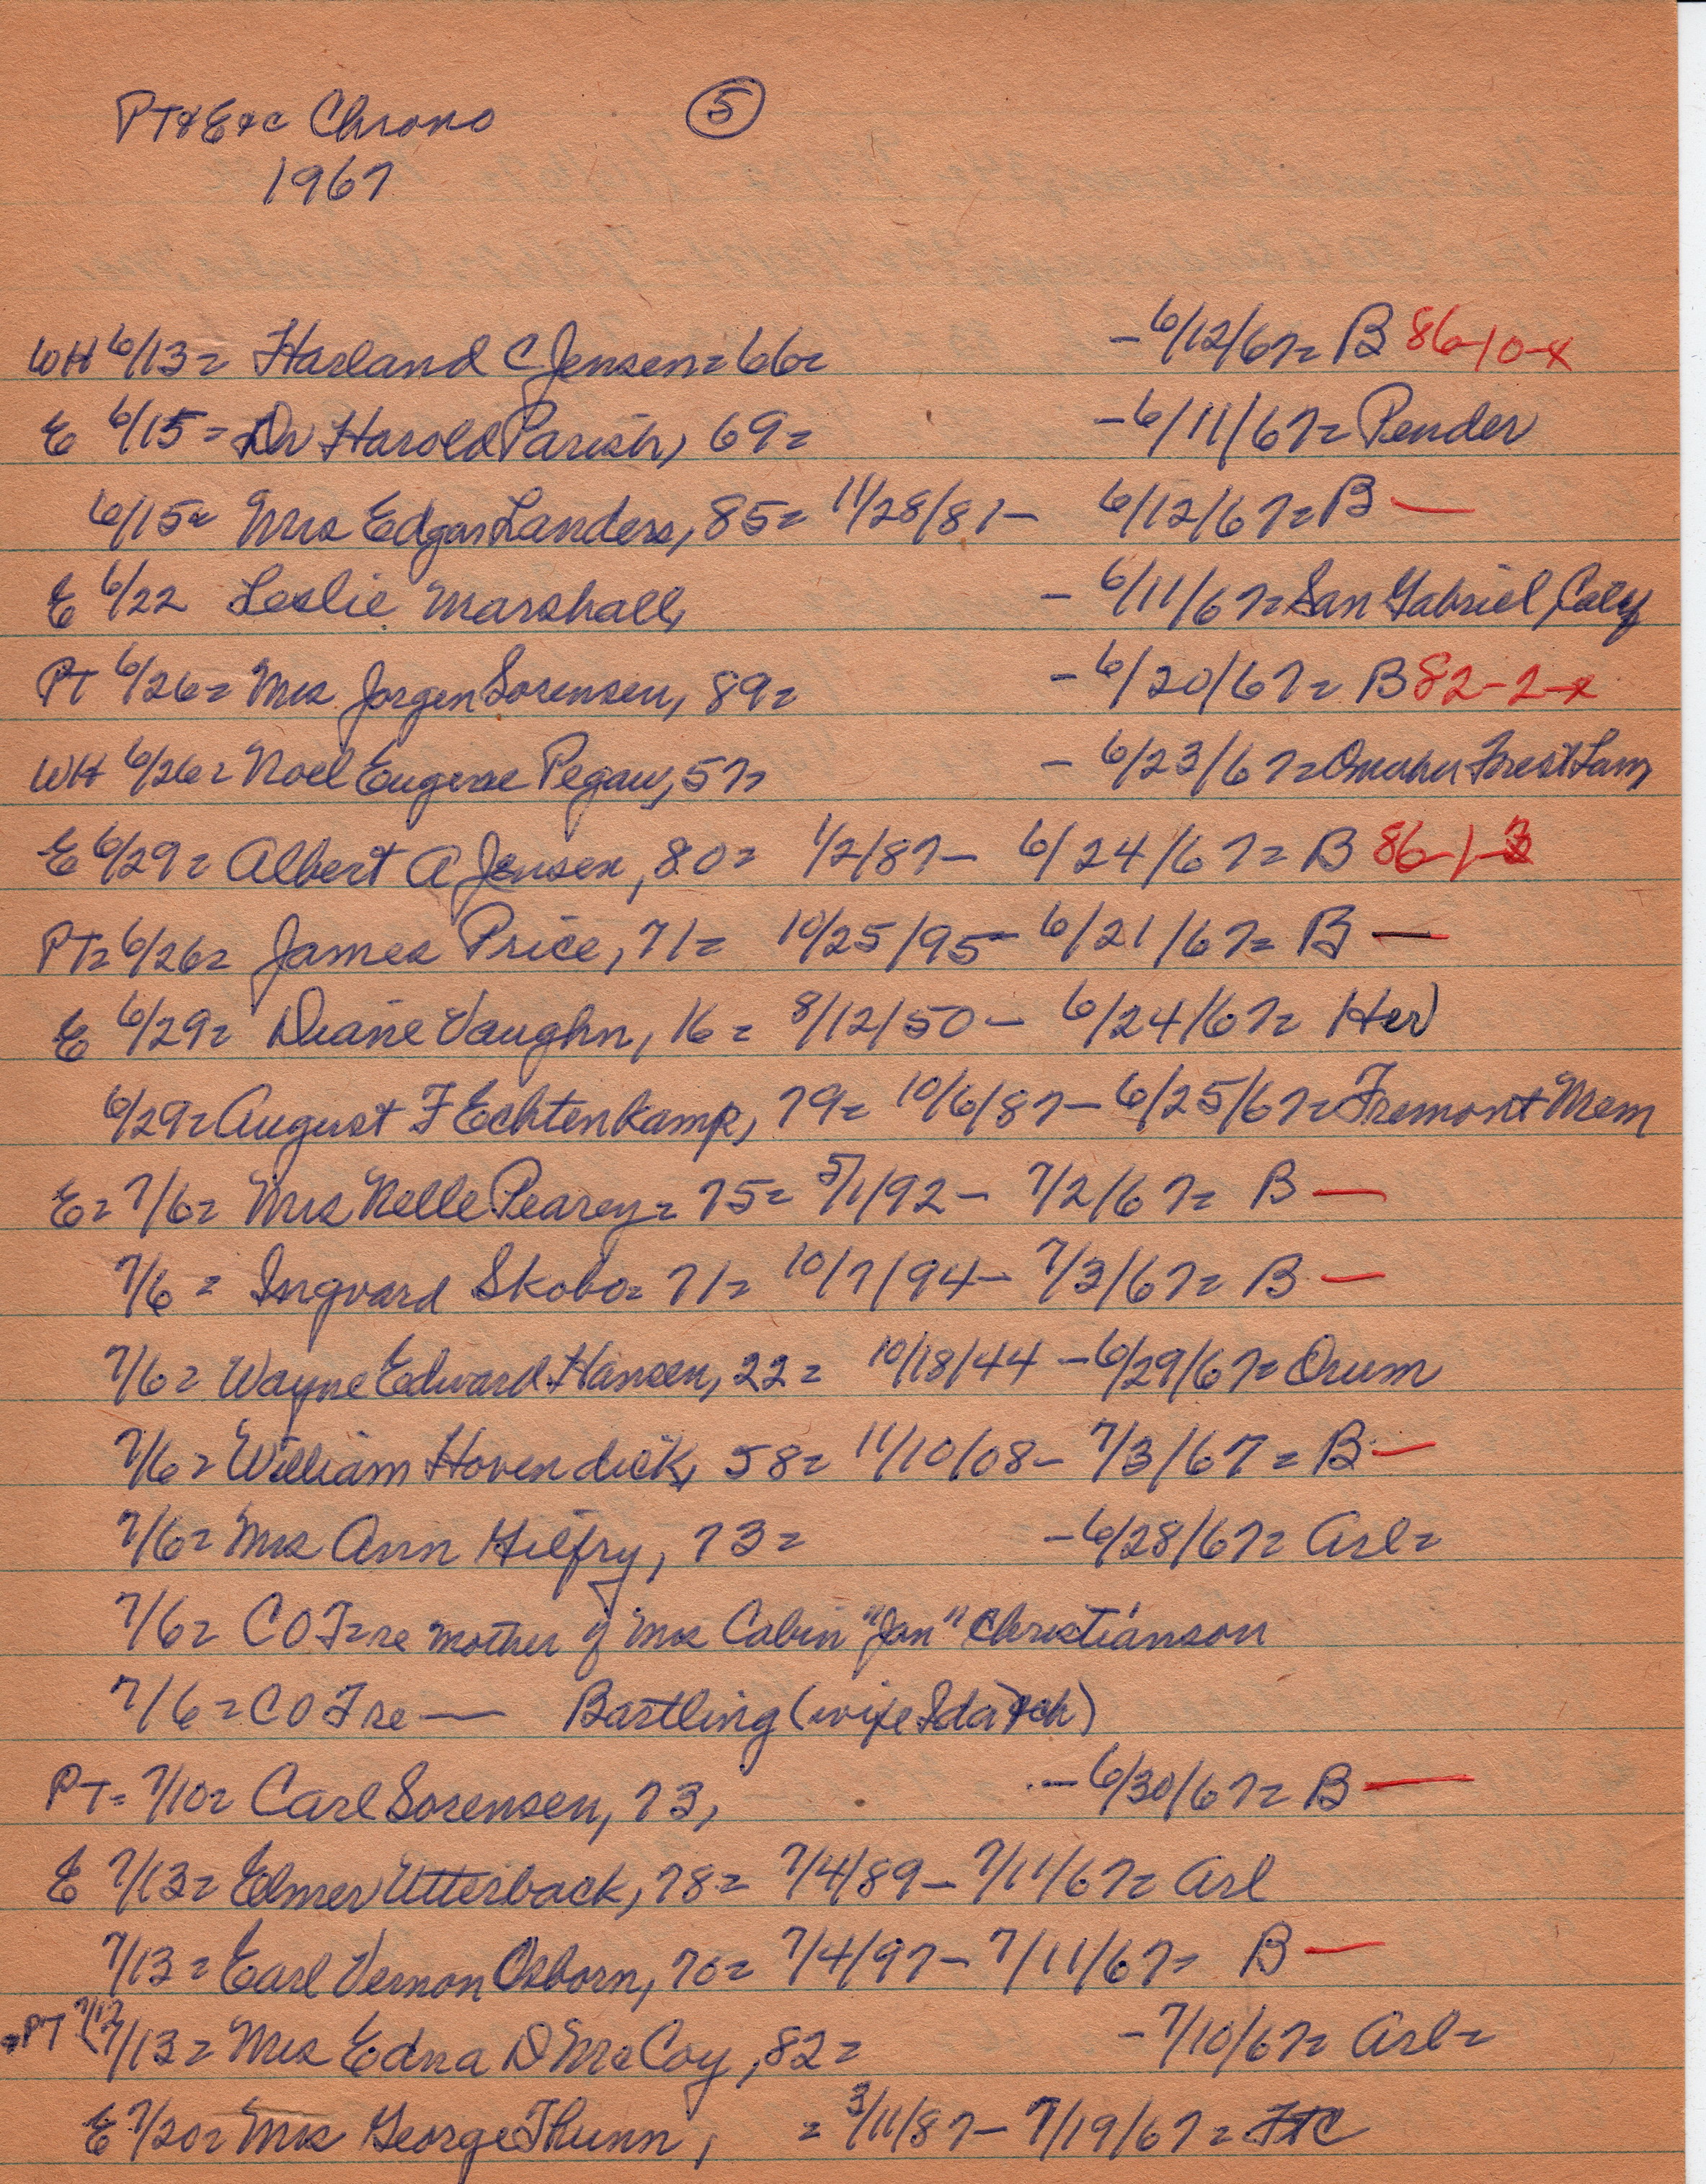 PT & E & c Chrono ⑤
1967
WH 6/13= Harland C Jensen=66= -6/12/67= B 86-10-x
E 6/15= Dr Harold Parish, 69= -6/11/67= Pender
6/15= Mrs Edgar Landers, 85= 11/28/81- 6/12/67= B —
E 6/22 Leslie Marshall, - 6/11/67= San Gabriel, Calif
PT 6/26= Mrs Jorgen Sorensen, 89= -6/20/67= B 82-2-x
WH 6/26= Noel Eugene Pegau, 57= - 6/23/67= Omaha Forest Lawn
E 6/29= Albert A Jensen, 80= 1/2/87- 6/24/67= B 86-1-3
PT= 6/26= James Price, 71= 10/25/95- 6/21/67= B —
E 6/29= Diane Vaughn, 16= 8/12/50- 6/24/67= Her
6/29= August F Echtenkamp, 79= 10/6/87- 6/25/67= Fremont Mem
E= 7/6= Mrs Nelle Pearey= 75= 5/1/92- 7/2/67= B —
7/6= Ingvard Skobo= 71= 10/7/94- 7/3/67= B —
7/6= Wayne Edward Hansen, 22= 10/18/44 -6/29/67= Orum
7/6= William Hovendick, 58= 11/10/08- 7/3/67= B —
7/6= Mrs Ann Hilfry, 73= -6/28/67= Arl=
7/6= COT=re mother of Mrs Calvin "Jan" Christianson
7/6= COT re — Bartling (wife Ida
PT= 7/10= Carl Sorensen, 73, -6/30/67= B —
E 7/13= Elmer Utterback, 78= 7/4/89- 7/11/67= Arl
7/13= Earl Vernon Osborn, 70= 7/4/97- 7/11/67= B —
=PT 7/17 (7/13= Mrs Edna D McCoy, 82= -7/10/67= Arl=
E 7/20= Mrs George Thunn, = 3/11/87- 7/19/67= FtC